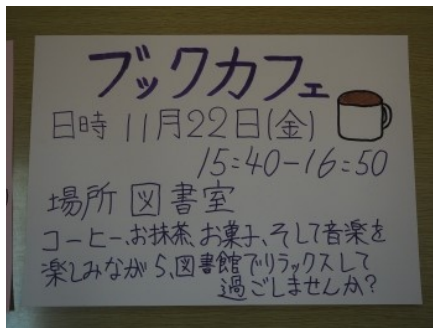 ブックカフェ
日時 11月22日(金)
15:40-16:50
場所 図書室
コーヒー、お抹茶、お菓子、そして音楽を
楽しみながら、図書館でリラックスして
過ごしませんか?